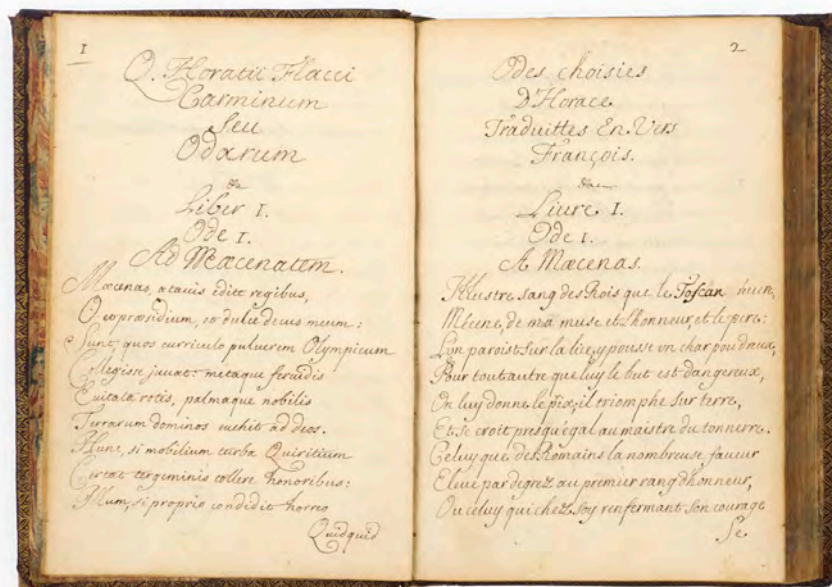 1
Q. Horatii Flacci
Carminum
Seu
Odarum
Liber I.
Ode I.
Ad Mæcenatem.
Mæcenas, atavis edite regibus,
O et præsidium, et dulce decus meum:
Sunt, quos curriculo pulverem Olympicum
Collegisse juvat: metaque fervidis
Evitata rotis, palmaque nobilis
Terrarum dominos evehit ad deos.
Hunc, si mobilium turba Quiritium
Certat tergeminis tollere honoribus:
Illum, si proprio condidit horreo
Quidquid
2
Odes choisies
D'Horace
Traduittes En Vers
François.
Livre I.
Ode I.
A Mæcenas.
Illustre sang des Rois que le Toscan
Mécene, de ma muse et L'honneur, et le pere:
L'un paroist sur la lice, y pousse un char poudreux,
Pour tout autre que luy le but est dangereux,
On luy donne le pix; il triomphe sur terre,
Et se croit presqu'égal au maistre du tonnerre.
Celuy que des Romains la nombreuse faveur
Elève par degrez au premier rang d'honneur,
Ou celuy qui chez soy renfermant son courage
Se